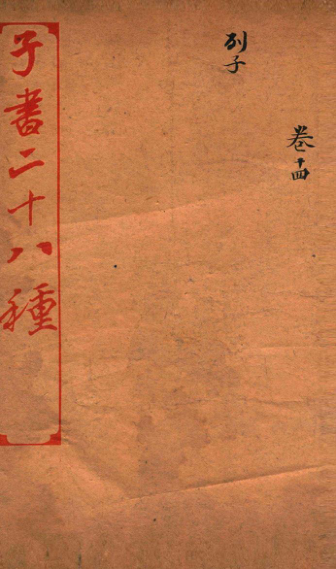 列子
卷十四
子書二十八種